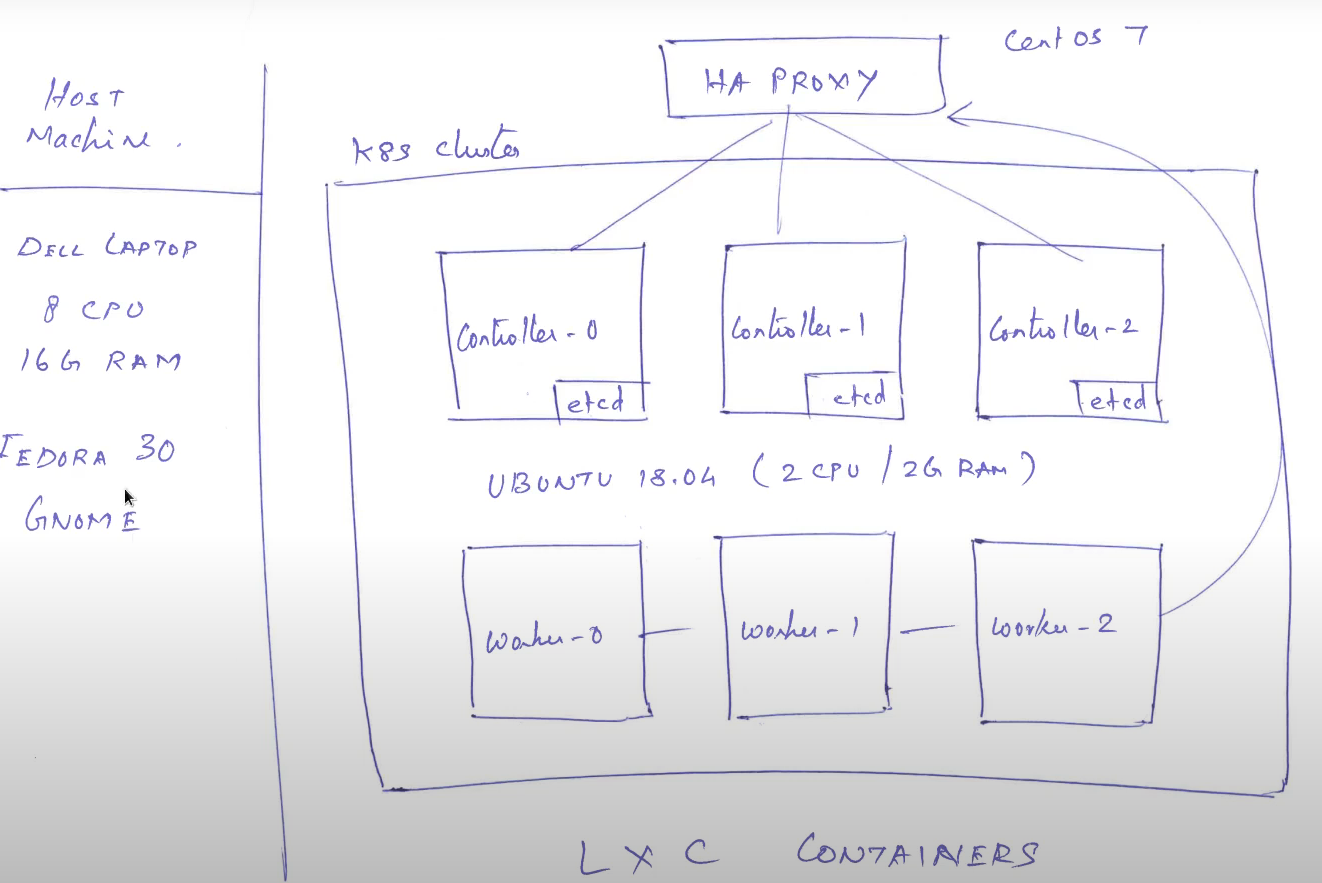 HOST
Machine.
DELL LAPTOP
8 CPU
16G RAM
FEDORA 30
GNOME
Cent OS 7
HA PROXY
K8s cluster
Controller-0
etcd
Controller-1
etcd
Controller-2
etcd
UBUNTU 18.04 (2 CPU / 2G RAM)
Worker-0
worker-1
worker-2
LXC CONTAINERS